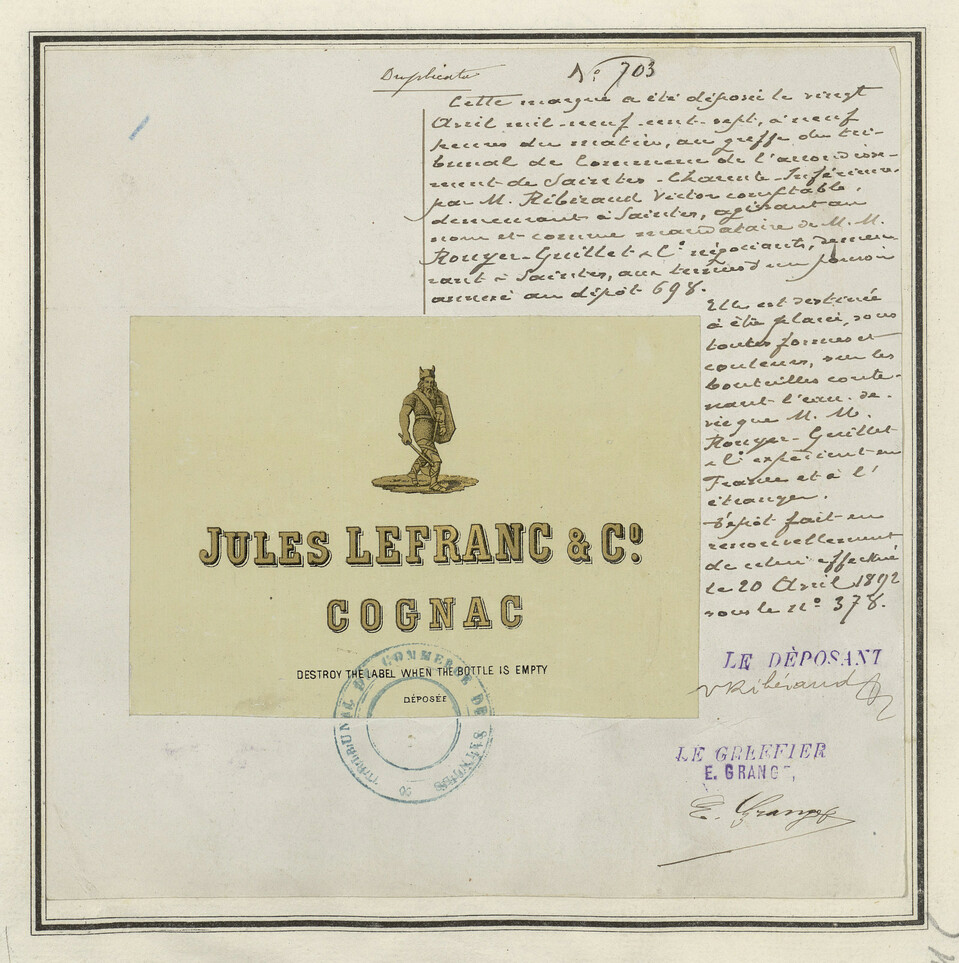 Duplicata
N° 703
Cette marque a été déposée le vingt
Avril mil-neuf-cent-sept, à neuf
heures du matin, au greffe du tri-
bunal de Commerce de l'arrondisse-
ment de Saintes-Charente-Inférieure,
par M. Ribéraud Victor comptable,
demeurant à Saintes, agissant au
nom et comme mandataire de M. M.
Rouyer-Guillet & Cie négociants, demeu-
rant à Saintes, aux termes d'un pouvoir
annexé au dépôt 698.
Elle est destinée
à être placée, sous
toutes formes et
couleurs, sur les
bouteilles conte-
nant l'eau-de-
vie que M. M.
Rouyer-Guillet
& Cie expédient en
France et à l'
étranger.
Dépôt fait en
renouvellement
de celui effectué
le 20 Avril 1892
sous le n° 378.
JULES LEFRANC & C°.
COGNAC
DESTROY THE LABEL WHEN THE BOTTLE IS EMPTY
DÉPOSÉE
TRIBUNAL DE COMMERCE DE SAINTES
LE DÉPOSANT
V Ribéraud
LE GREFFIER
E. GRANGE,
E. Grange